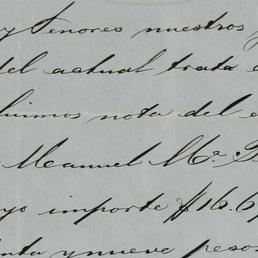 y Señores nuestros
del actual trata
himos nota del
Manuel Mª
yo importe $16.6
nta y nueve pesos